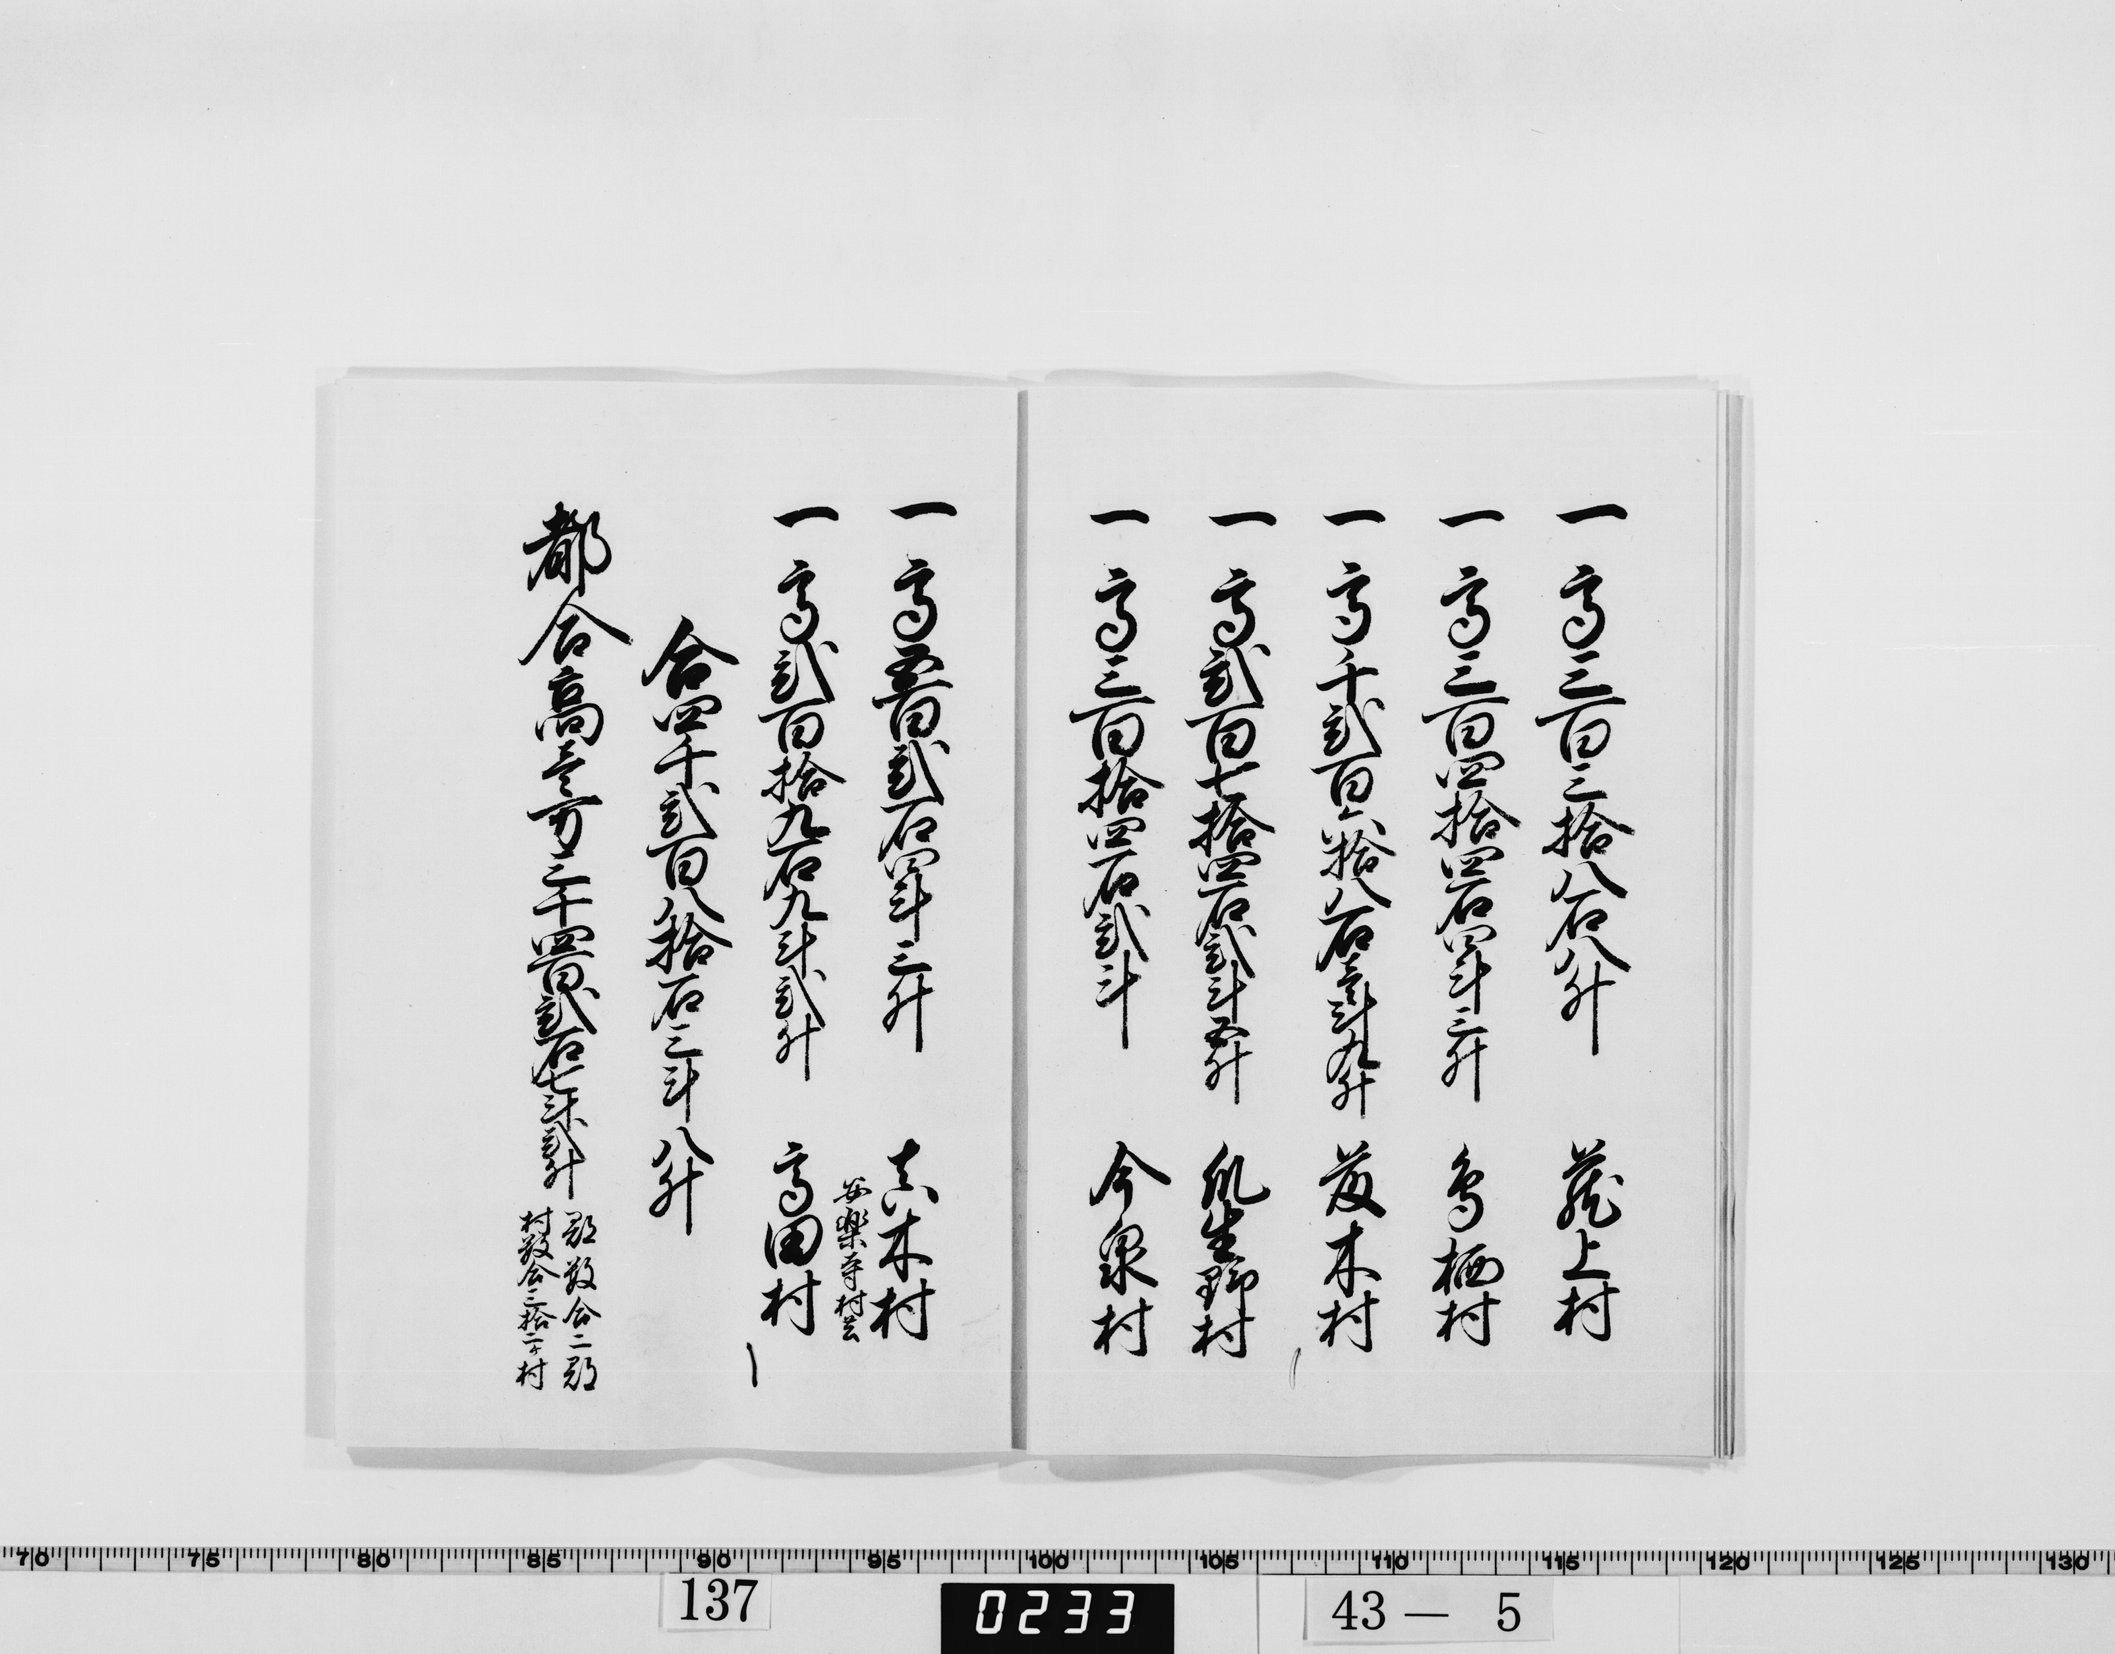 一 高三百三拾八石八升 蔵上村
一 高三百四拾四石四斗三升 鳥栖村
一 高千弐百六拾八石壱斗九升 藤木村
一 高弐百七拾四石弐斗五升 瓜生野村
一 高三百拾四石弐斗 今泉村
一 高五百弐石四斗三升 真木村
安楽寺村共
一 高弐百拾九石九斗弐升 高田村
合四千弐百八拾石三斗八升
都合高壱万三千四百弐石七斗弐升
郡数合二郡
村数合三拾二ケ村
70 75 80 85 90 95 100 105 110 115 120 125 130
137
0233
43－5